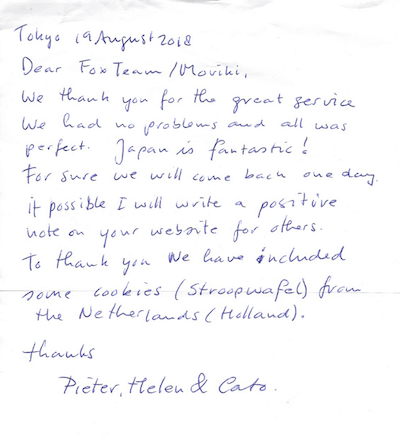 Tokyo 19 August 2018
Dear Fox Team / Moviki,
We thank you for the great service
We had no problems and all was
perfect. Japan is fantastic!
For sure we will come back one day.
if possible I will write a positive
note on your website for others.
To thank you We have included
some cookies (Stroopwafel) from
the Netherlands (Holland).
thanks
Pieter, Helen & Cato.